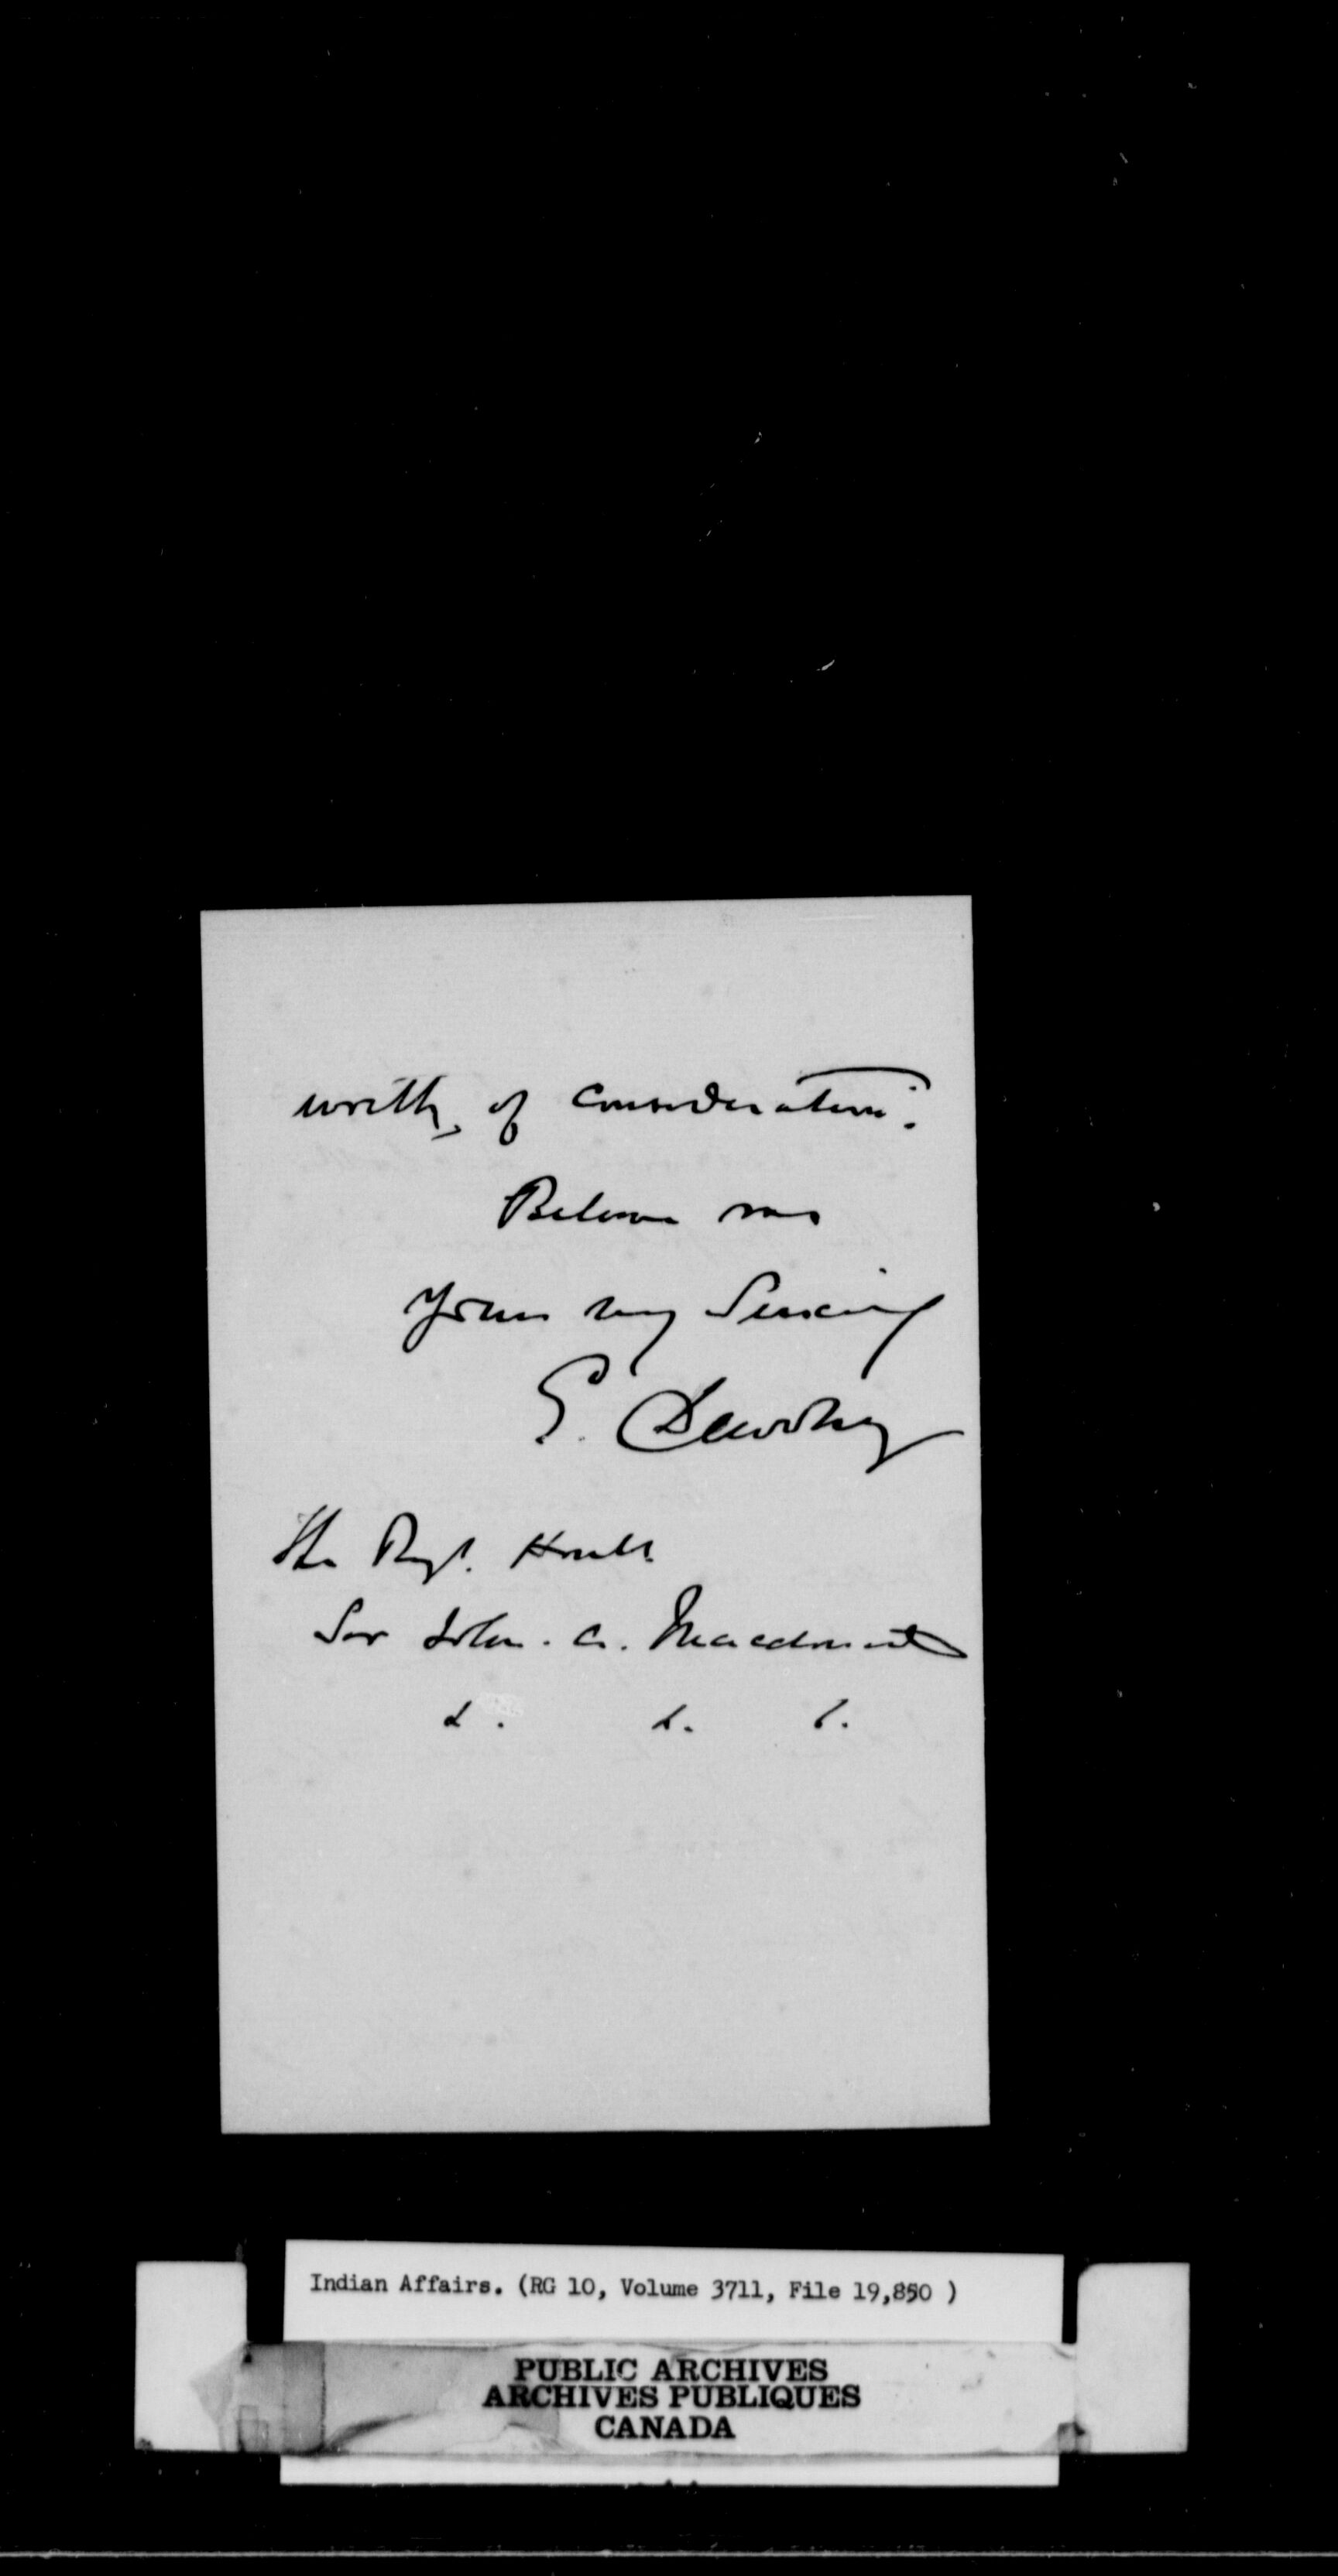 worthy of consideration.
Believe me
Yours very Sincerely
E. Dewdney
The Rgt. Honble.
Sir John. A. Macdonald
&. &. &.
Indian Affairs. (RG 10, Volume 3711, File 19,850 )
PUBLIC ARCHIVES
ARCHIVES PUBLIQUES
CANADA